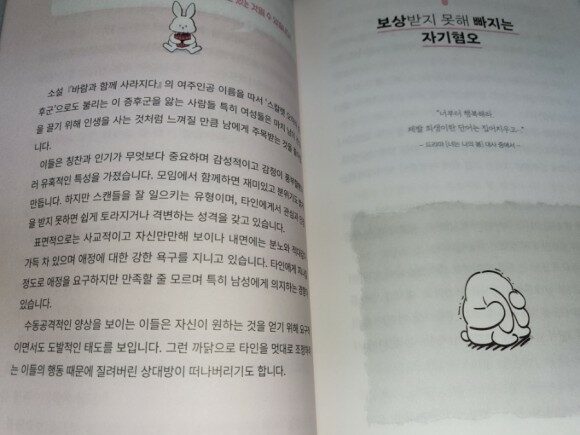 있는 것을 수
소설 『바람과 함께 사라지다』의 여주인공 이름을 따서 '스칼렛
후군'으로도 불리는 이 증후군을 앓는 사람들 특히 여성들은 마치
을 끌기 위해 인생을 사는 것처럼 느껴질 만큼 남에게 주목받는 것을
니다.
이들은 칭찬과 인기가 무엇보다 중요하며 감성적이고 감정이
러 유혹적인 특성을 가졌습니다. 모임에서 함께하면 재미있고
만듭니다. 하지만 스캔들을 잘 일으키는 유형이며, 타인에게서 관심과
을 받지 못하면 쉽게 토라지거나 격변하는 성격을 갖고 있습니다.
표면적으로는 사교적이고 자신만만해 보이나 내면에는 분노와
가득 차 있으며 애정에 대한 강한 욕구를 지니고 있습니다. 타인에게
정도로 애정을 요구하지만 만족할 줄 모르며 특히 남성에게 의지하는
있습니다.
수동공격적인 양상을 보이는 이들은 자신이 원하는 것을 얻기 위해
이면서도 도발적인 태도를 보입니다. 그런 까닭으로 타인을 멋대로
는 이들의 행동 때문에 질려버린 상대방이 떠나버리기도 합니다.
보상받지 못해 빠지는
자기혐오
"너부터 행복해라.
제발 희생이란 단어는 집어치우고."
- 드라마 〈너는 나의 봄〉 대사 중에서 -